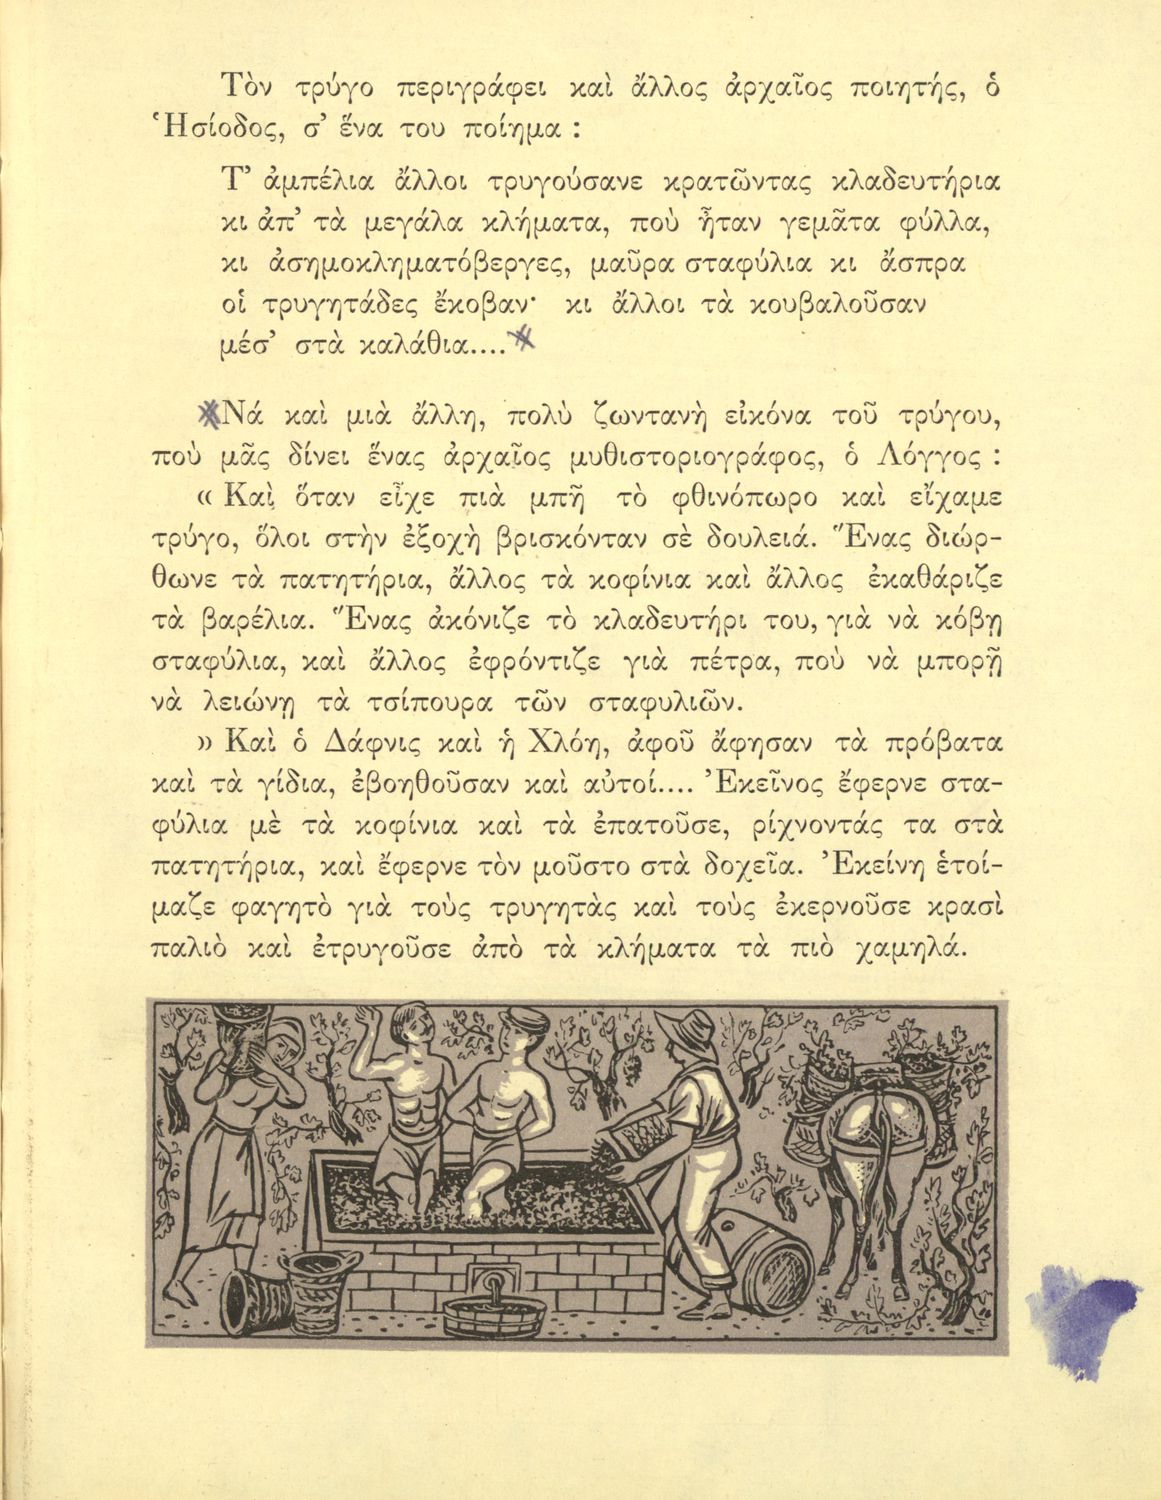 Τὸν τρύγο περιγράφει καὶ ἄλλος ἀρχαῖος ποιητής, ὁ
Ἡσίοδος, σ’ ἕνα του ποίημα :
Τ’ ἀμπέλια ἄλλοι τρυγούσανε κρατῶντας κλαδευτήρια
κι ἀπ’ τὰ μεγάλα κλήματα, ποὺ ἦταν γεμᾶτα φύλλα,
κι ἀσημοκληματόβεργες, μαῦρα σταφύλια κι ἄσπρα
οἱ τρυγητάδες ἔκοβαν· κι ἄλλοι τὰ κουβαλοῦσαν
μέσ’ στὰ καλάθια....
Νά καὶ μιὰ ἄλλη, πολὺ ζωντανὴ εἰκόνα τοῦ τρύγου,
ποὺ μᾶς δίνει ἕνας ἀρχαῖος μυθιστοριογράφος, ὁ Λόγγος :
« Καὶ ὅταν εἶχε πιὰ μπῆ τὸ φθινόπωρο καὶ εἴχαμε
τρύγο, ὅλοι στὴν ἐξοχὴ βρισκόνταν σὲ δουλειά. Ἕνας διώρ-
θωνε τὰ πατητήρια, ἄλλος τὰ κοφίνια καὶ ἄλλος ἐκαθάριζε
τὰ βαρέλια. Ἕνας ἀκόνιζε τὸ κλαδευτήρι του, γιὰ νὰ κόβῃ
σταφύλια, καὶ ἄλλος ἐφρόντιζε γιὰ πέτρα, ποὺ νὰ μπορῇ
νὰ λειώνῃ τὰ τσίπουρα τῶν σταφυλιῶν.
» Καὶ ὁ Δάφνις καὶ ἡ Χλόη, ἀφοῦ ἄφησαν τὰ πρόβατα
καὶ τὰ γίδια, ἐβοηθοῦσαν καὶ αὐτοί.... Ἐκεῖνος ἔφερνε στα-
φύλια μὲ τὰ κοφίνια καὶ τὰ ἐπατοῦσε, ρίχνοντάς τα στὰ
πατητήρια, καὶ ἔφερνε τὸν μοῦστο στὰ δοχεῖα. Ἐκείνη ἑτοί-
μαζε φαγητὸ γιὰ τοὺς τρυγητὰς καὶ τοὺς ἐκερνοῦσε κρασὶ
παλιὸ καὶ ἐτρυγοῦσε ἀπὸ τὰ κλήματα τὰ πιὸ χαμηλά.